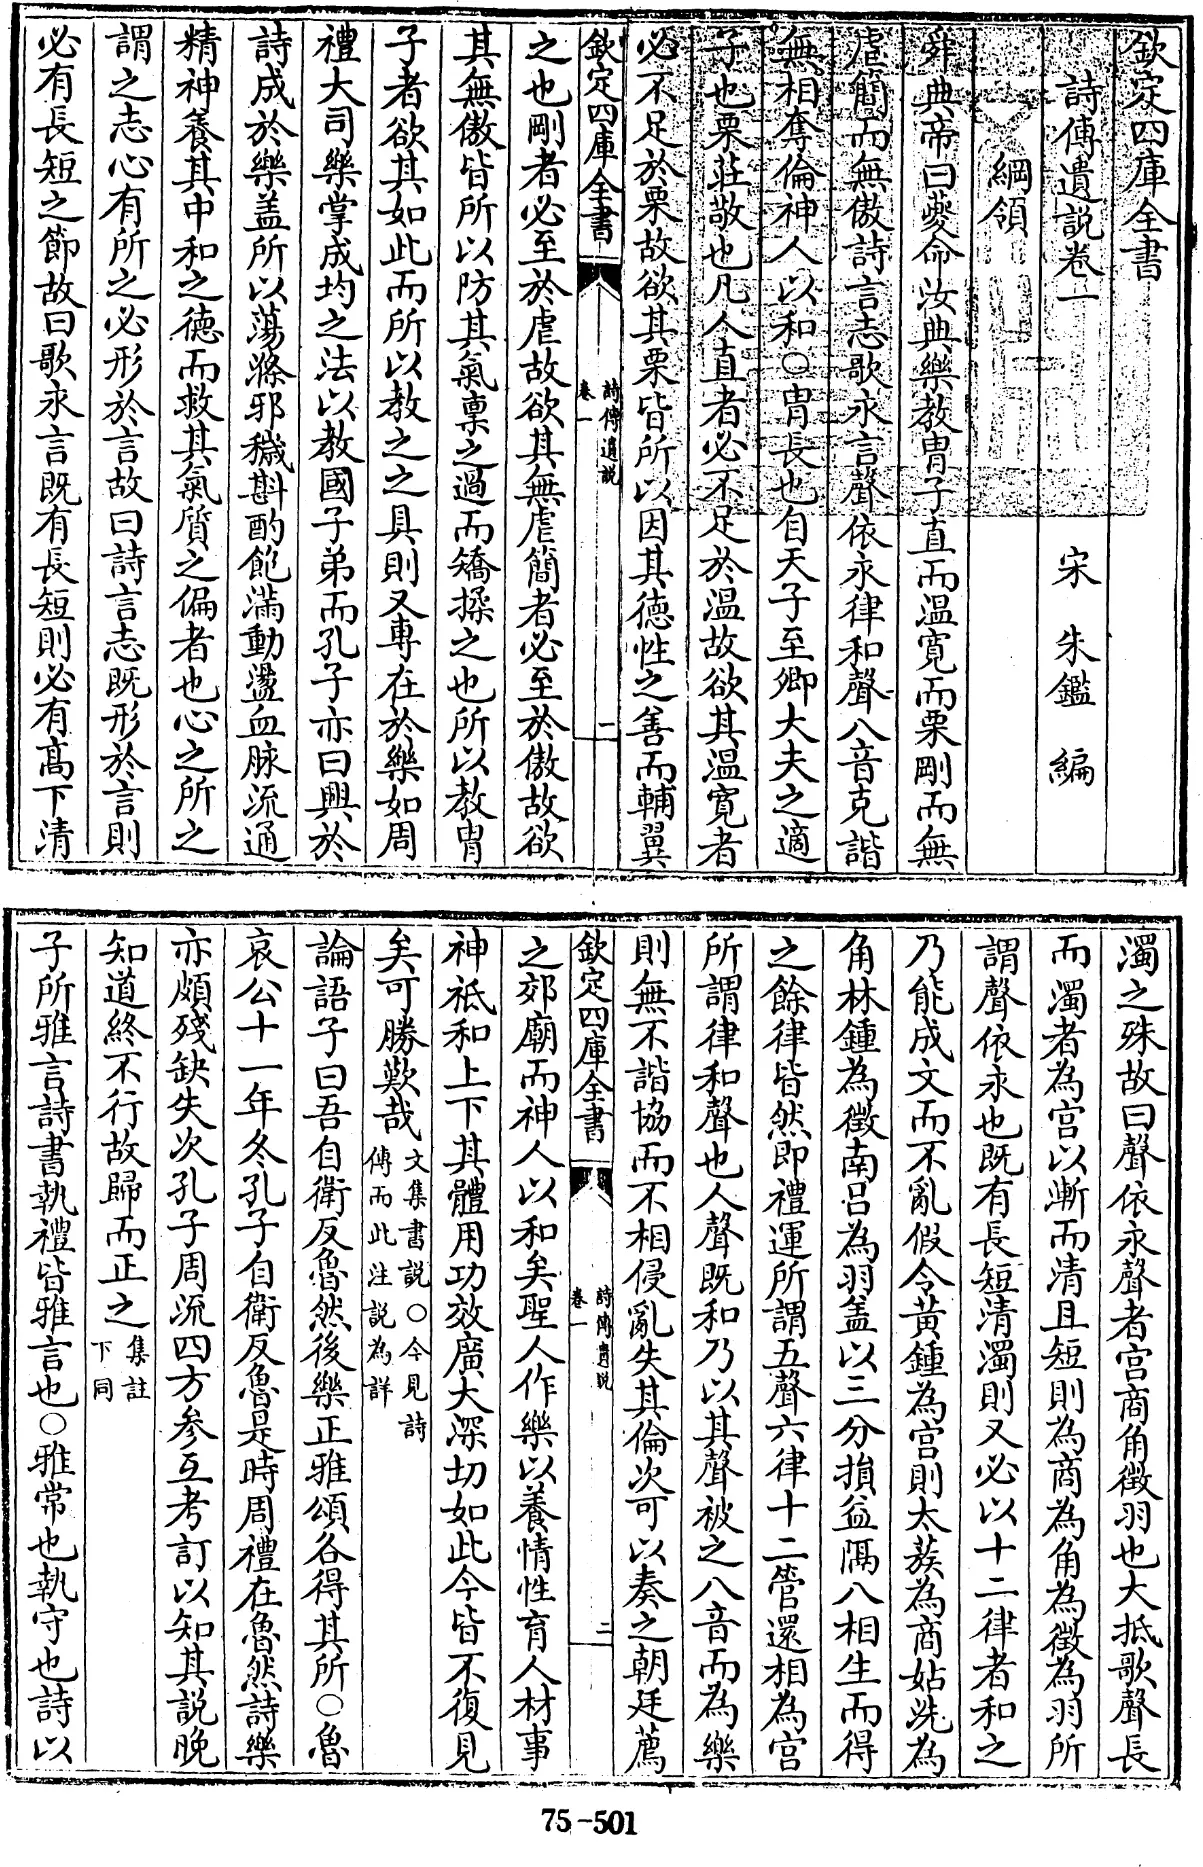 欽定四庫全書
詩傳遺説卷一
宋 朱鑑 編
綱領
舜典帝曰夔命汝典樂教胄子直而温寛而栗剛而無
虐簡而無傲詩言志歌永言聲依永律和聲八音克諧
無相奪倫神人以和○胄長也自天子至卿大夫之適
子也栗莊敬也凡人直者必不足於温故欲其温寛者
必不足於栗故欲其栗皆所以因其德性之善而輔翼
欽定四庫全書
詩傳遺説
卷一
二
之也剛者必至於虐故欲其無虐簡者必至於傲故欲
其無傲皆所以防其氣稟之過而矯揉之也所以教胄
子者欲其如此而所以教之之具則又專在於樂如周
禮大司樂掌成均之法以教國子弟而孔子亦曰興於
詩成於樂盖所以蕩滌邪穢斟酌飽滿動盪血脉流通
精神養其中和之德而救其氣質之偏者也心之所之
謂之志心有所之必形於言故曰詩言志既形於言則
必有長短之節故曰歌永言既有長短則必有髙下清
濁之殊故曰聲依永聲者宫商角徵羽也大抵歌聲長
而濁者為宫以漸而清且短則為商為角為徵為羽所
謂聲依永也既有長短清濁則又必以十二律者和之
乃能成文而不亂假令黄鍾為宫則太蔟為商姑洗為
角林鍾為徵南吕為羽盖以三分損益隔八相生而得
之餘律皆然即禮運所謂五聲六律十二管還相為宫
所謂律和聲也人聲既和乃以其聲被之八音而為樂
則無不諧協而不相侵亂失其倫次可以奏之朝廷薦
欽定四庫全書
詩傳遺説
卷一
三
之郊廟而神人以和矣聖人作樂以養情性育人材事
神祇和上下其體用功效廣大深切如此今皆不復見
矣可勝歎哉
文集書説○今見詩
傳而此注説為詳
論語子曰吾自衛反魯然後樂正雅頌各得其所○魯
哀公十一年冬孔子自衛反魯是時周禮在魯然詩樂
亦頗殘缺失次孔子周流四方参互考訂以知其説晚
知道終不行故歸而正之
集註
下同
子所雅言詩書執禮皆雅言也○雅常也執守也詩以
75-501